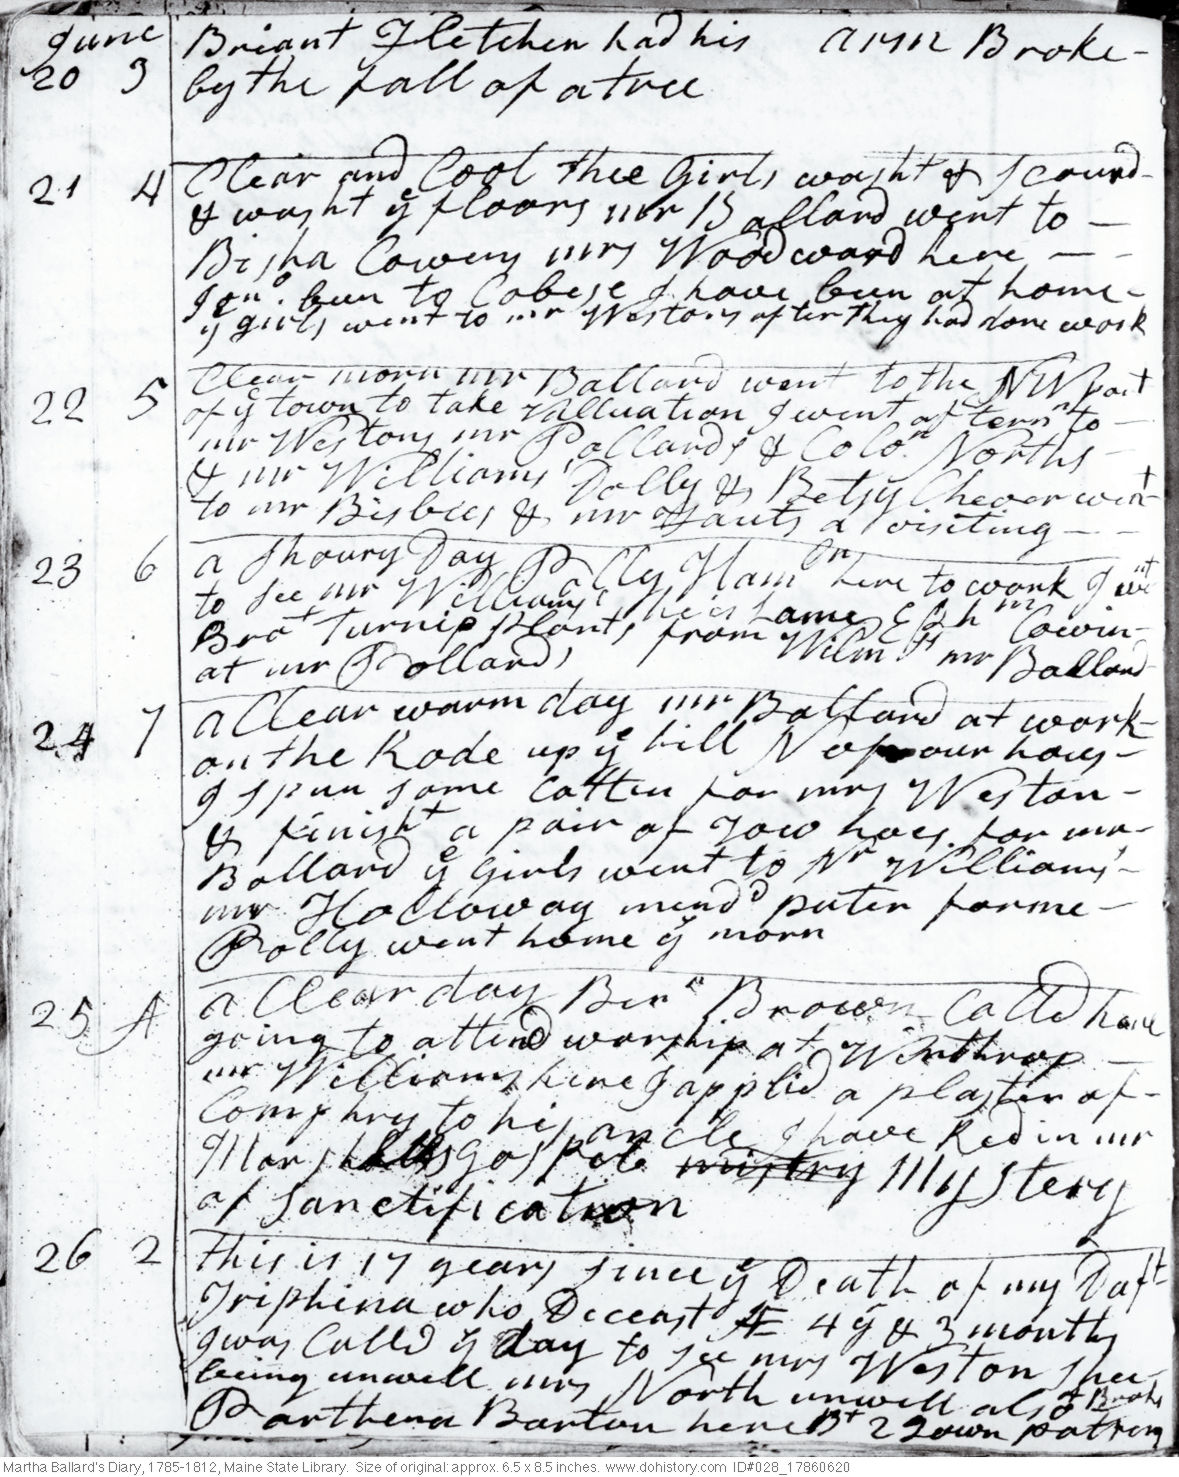 June Briant Fletcher had his arm Broke-
20 3 by the fall of a tree
21 4 Clear and Cool thee Girls washt & Scourd-
& washt ye floors mr Ballard went to —
Bisha Cowens mrs Woodward here — -
Jonn. been to Cobese I have been at home-
ye girls went to mr Westons after they had done work
22 5 Clear morn mr Ballard went to the NW part
of ye town to take valluation I went aftern to -
mr Westons mr Pollards & Colon Norths -
& mr Williams' Dolly & Betsy Chever went
to mr Bisbees & mr a visiting — -
23 6 a Shoury Day Polly Ham here to work I wnt
to See mr Williams he is Lame Ephm Cowin-
Brot Turnip plants from mr Ballard
at mr Pollards
24 7 a Clear warm day mr Ballard at work-
on the Rode up ye hill N of our hous-
I spun some Cotten for mrs Weston-
& finisht a pair of Tow hoes for mr-
Ballard ye Girls went to Mr Williams'-
mr Holloway mendd puter for me-
Polly went home ye morn
25 A a Clear day Benn Brown Calld here
going to attend worship at Winthrop —
mr Williams here I applid a plaster of-
Comphry to his ancle I have Red in mr
Marshalls gospele mistry Mystery
of Sanctification
26 2 this is 17 years since ye Death of my Daft
Triphena who Deceast Æ 4 y & 3 months
I was Calld ys day to see mrs Weston shee
being unwell mrs North unwell also
Parthena Barton here Bt 2 Gown patrons
Martha Ballard's Diary, 1785-1812, Maine State Library. Size of original: approx. 6.5 x 8.5 inches. www.dohistory.com ID#028_17860620